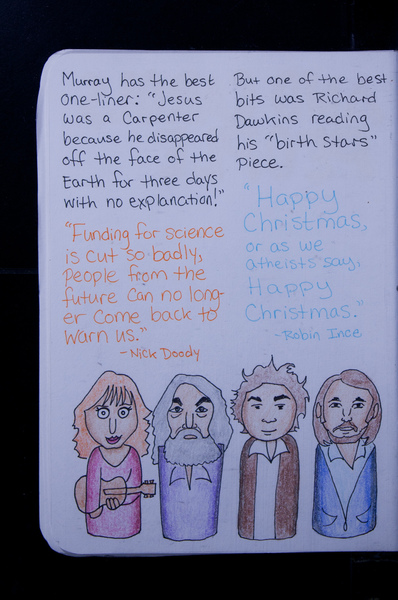 Murray has the best
one-liner: "Jesus
was a Carpenter
because he disappeared
off the face of the
Earth for three days
with no explanation!"
"Funding for science
is cut so badly,
People from the
future can no long-
er come back to
warn us."
-Nick Doody
But one of the best
bits was Richard
Dawkins reading
his "birth stars"
piece.
"Happy
Christmas,
or as we
atheists say,
Happy
Christmas."
-Robin Ince